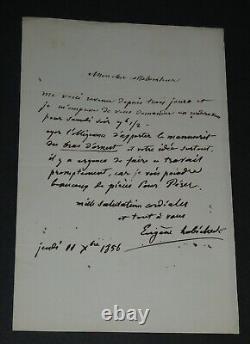 Monsieur
me voici revenu depuis trois jours et
je m'empresse de vous demander un
pour samedi soir 7h 1/2 -
ayez l'obligeance d'apporter le manuscrit
du bras d'ernest et votre idée surtout,
il y a urgence de faire ce travail
promptement, car je vois poindre
beaucoup de pièces pour
mille salutations cordiales
et tout à vous
Eugène Labiche
jeudi 11 Xbre 1856